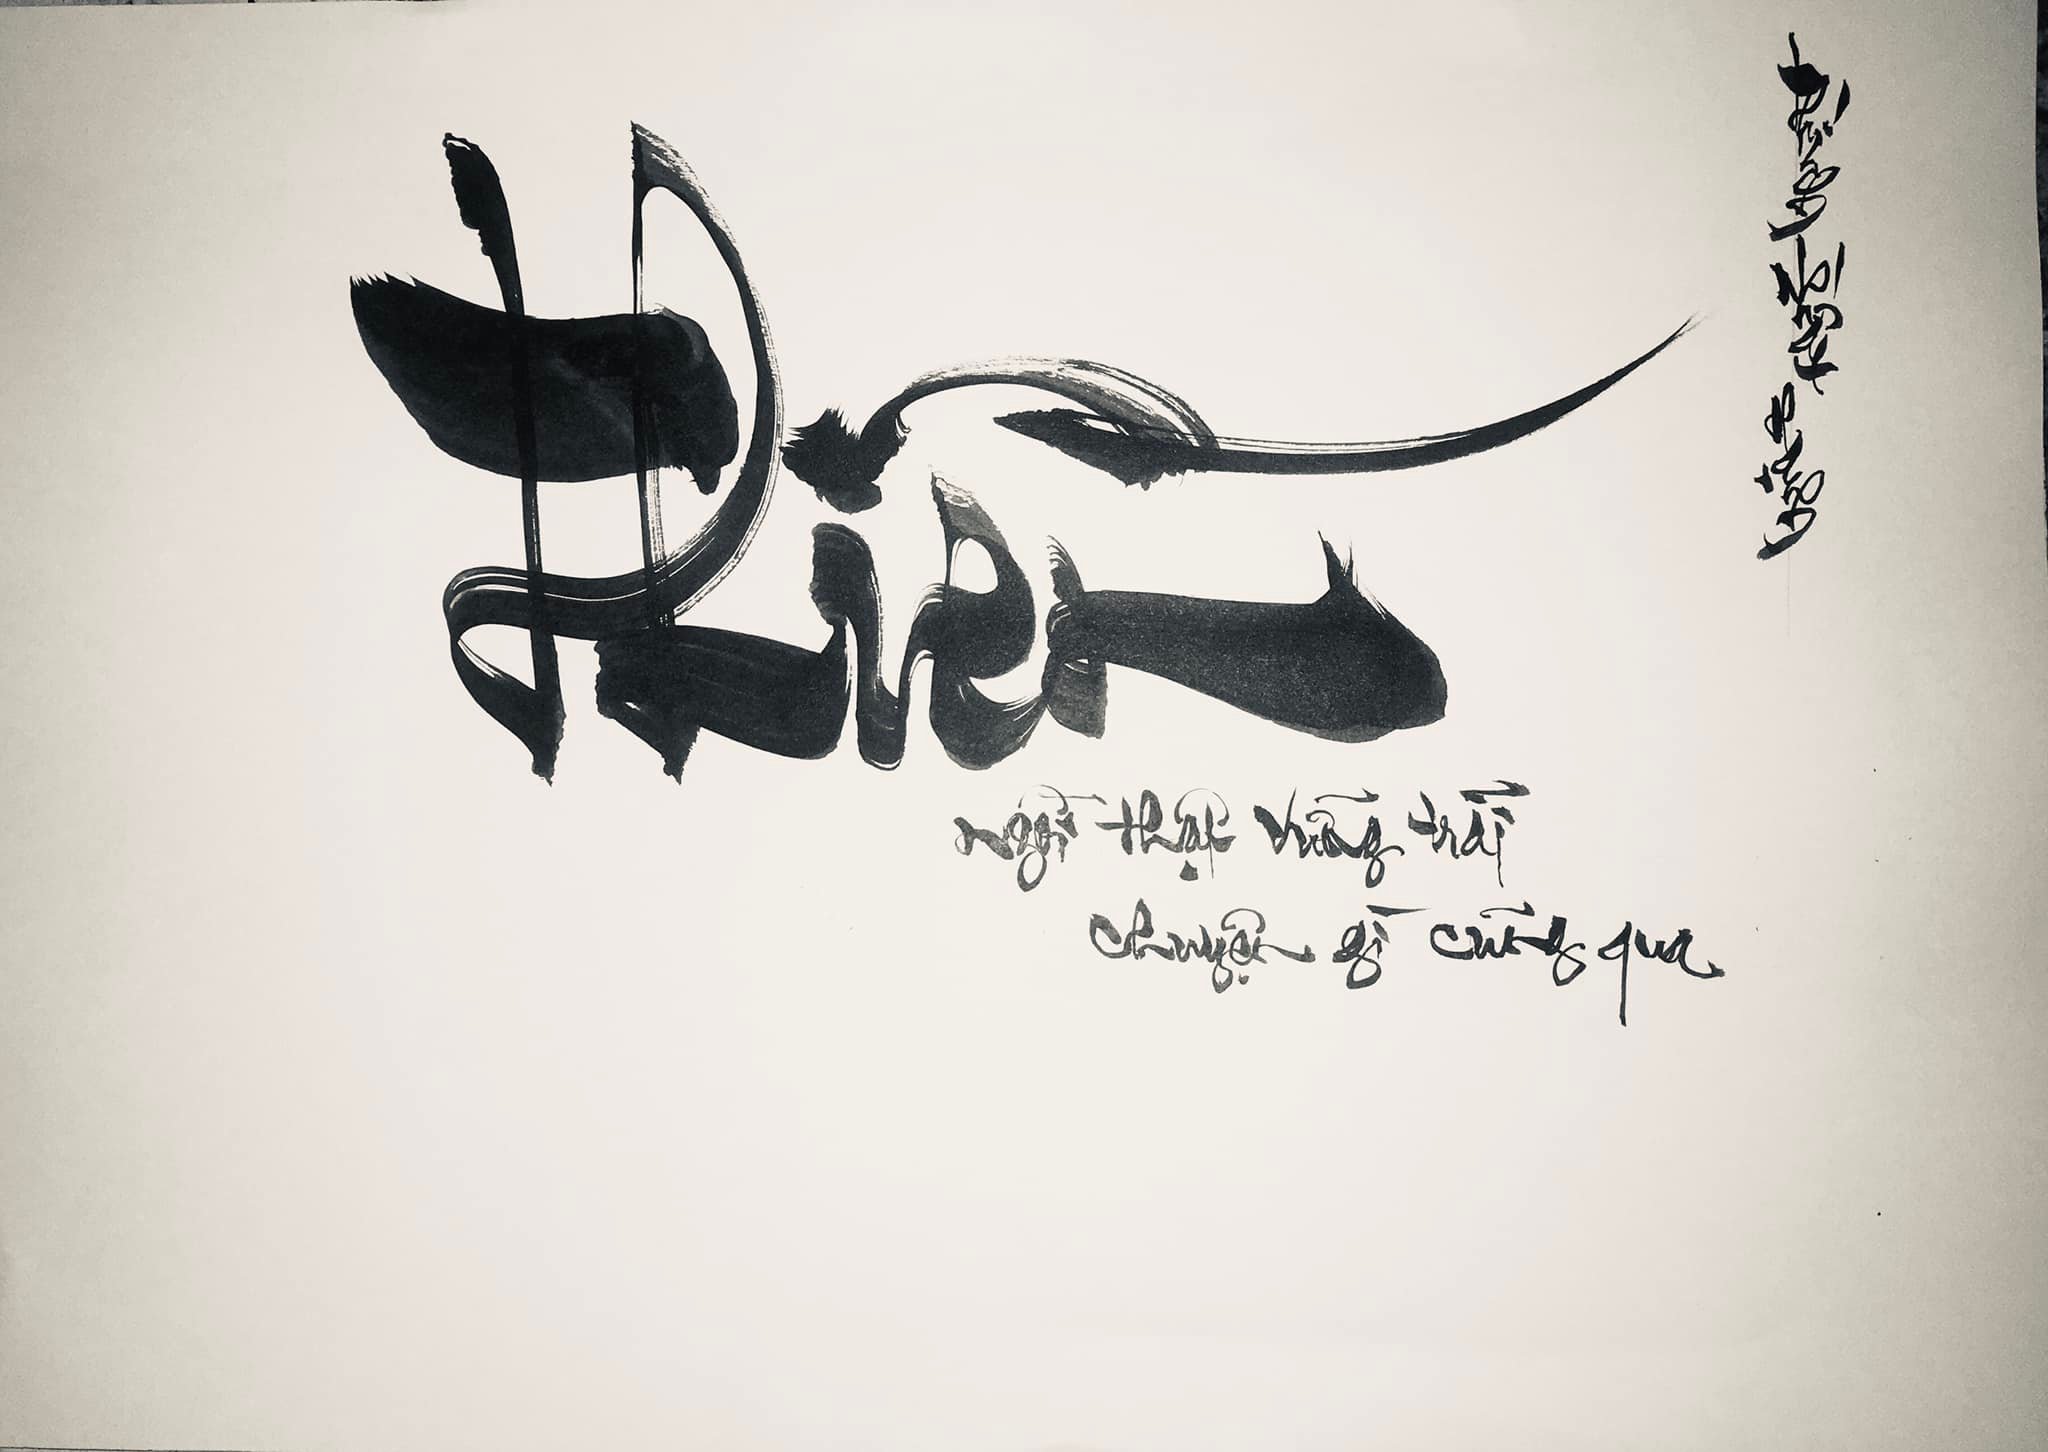 Thiền
Ngồi thật vững trãi
chuyện gì cũng qua